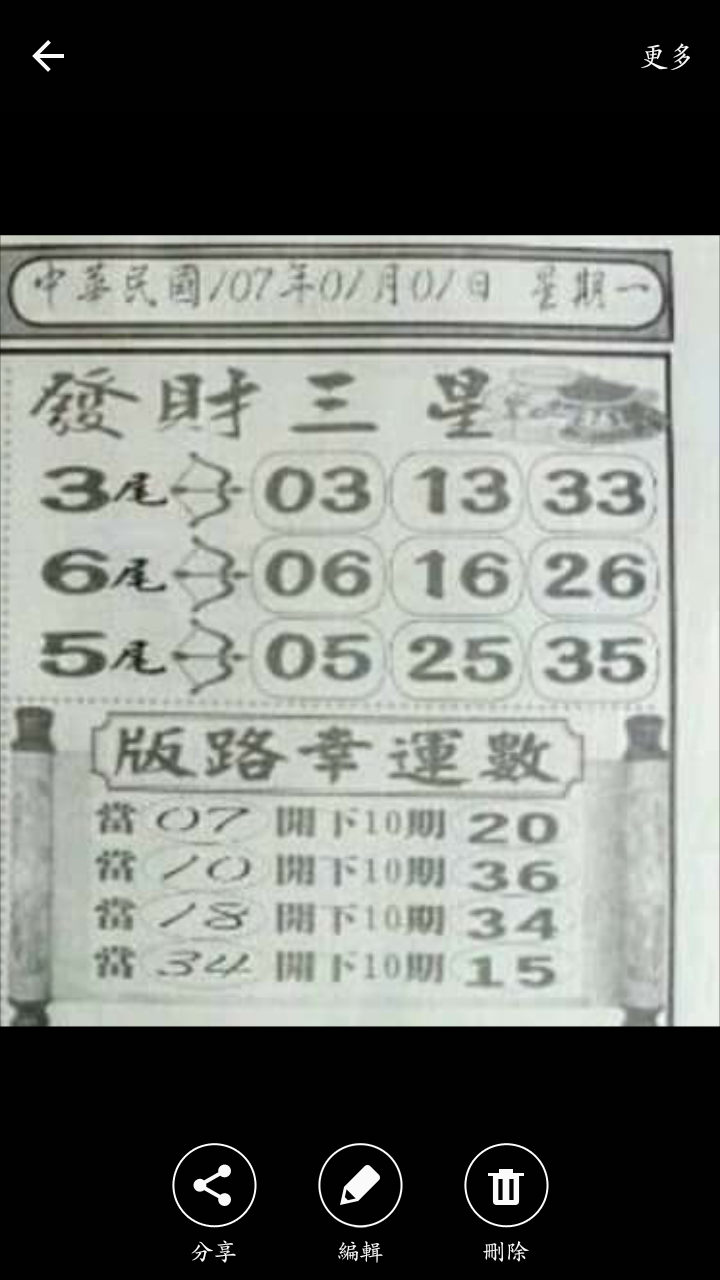 更多
中華民國107年01月01日 星期一
發財三星
3尾 03 13 33
6尾 06 16 26
5尾 05 25 35
版路幸運數
當07開下10期20
當10開下10期36
當18開下10期34
當34開下10期15
分享 編輯 刪除